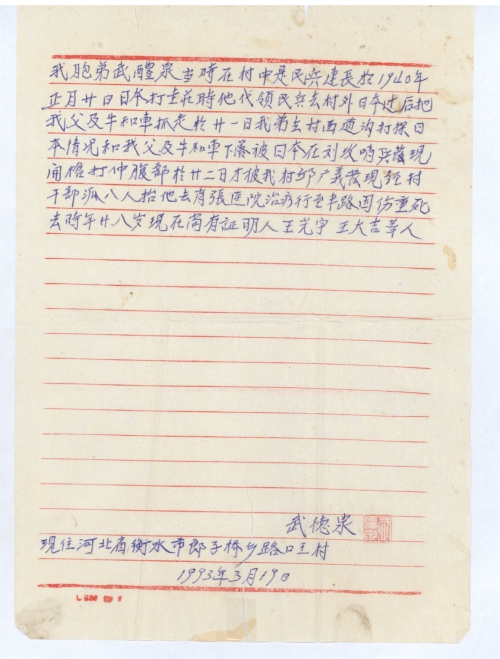 我胞弟武醴泉当時在村中是民兵連長於1940年
正月廿日日本打圭庄時他代領民兵去村外日本过后把
我父及牛和車抓走於廿一日我弟去村西道沟打探日
本情况和我父及牛和車下落被日本在刘坟哨兵发現
開槍打仲腹部於廿二日才被我村邱广義发現经村
干部派八人抬他去肖張医院治疗行至半路因伤重死
去時年廿八岁現在尚有証明人王光宇 王大吉等人
武德泉
現住河北省衡水市郎子桥乡路口王村
1993年3月19日